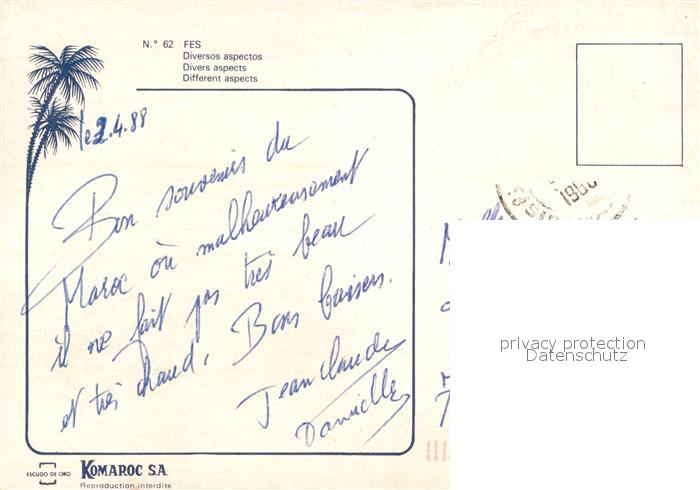 N.° 62 FES
Diversos aspectos
Divers aspects
Different aspects
le 2.4.88
Bon souvenirs du
Maroc où malheureusement
il ne fait pas très beau
et très chaud. Bons baisers.
Jean Claude
Danielle
privacy protection
Datenschutz
ESCUDO DE ORO
KOMAROC S.A.
Reproduction interdite